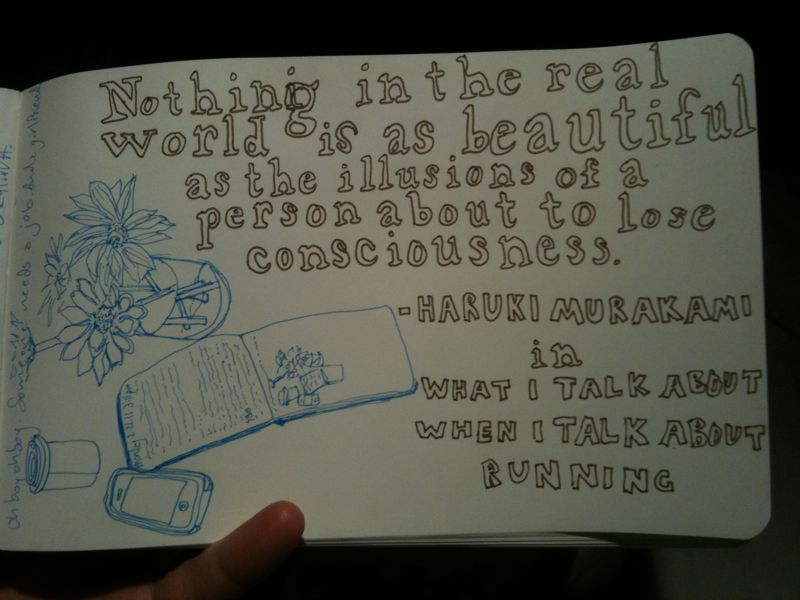 Nothing in the real
world is as beautiful
as the illusions of a
person about to lose
consciousness.
-HARUKI MURAKAMI
in
WHAT I TALK ABOUT
WHEN I TALK ABOUT
RUNNING
oh boy oh boy. Someone needs a job. And a girlfriend